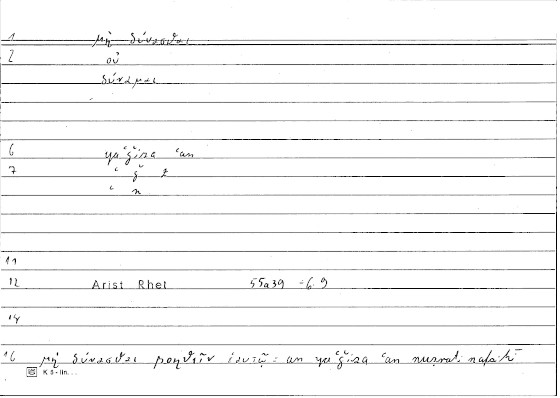 1 μὴ δύνασθαι
2 οὐ
δύναμαι
6 yaʿǧiza ʿan
7 ʿ ǧ z
ʿ n
11
12 Arist Rhet 55a39 = 6.9
14
16 μὴ δύνασθαι βοηθεῖν ἑαυτῷ: an yaʿǧiza ʿan nuṣrati nafsihī
K 5 - lin...